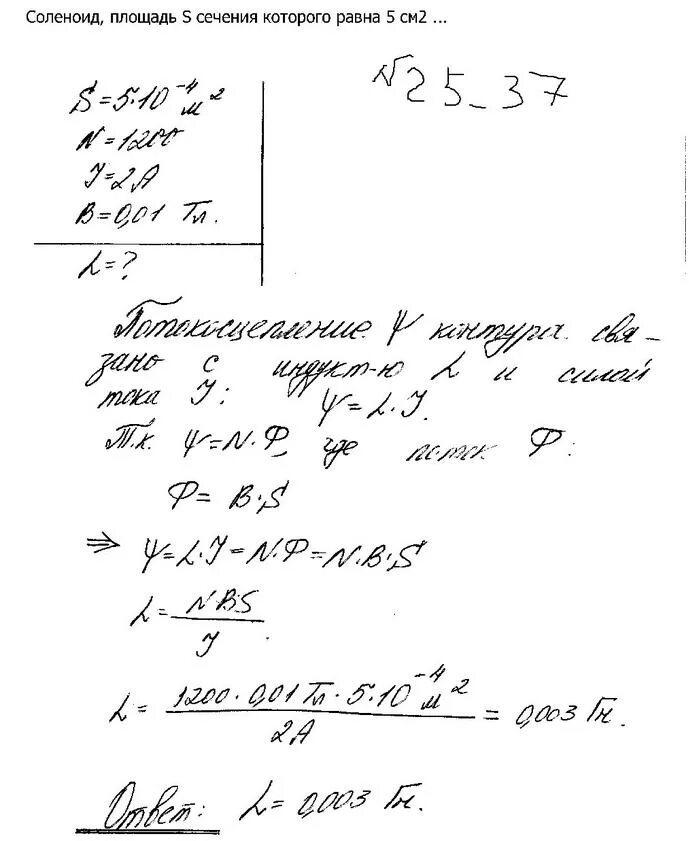 Соленоид, площадь S сечения которого равна 5 см2 ...
№25-37
S=5·10⁻⁴ м²
N=1200
J=2A
B=0,01 Тл.
L=?
Потокосцепление Ψ контура свя-
зано с индукт-ю L и силой
тока J: Ψ=L·J.
Т.к. Ψ=N·Ф, где поток Ф:
Ф= B·S
⇒ Ψ=L·J=N·Ф=N·B·S
L= NBS / J.
L= 1200·0,01 Тл·5·10⁻⁴ м² / 2A = 0,003 Гн.
Ответ: L= 0,003 Гн.